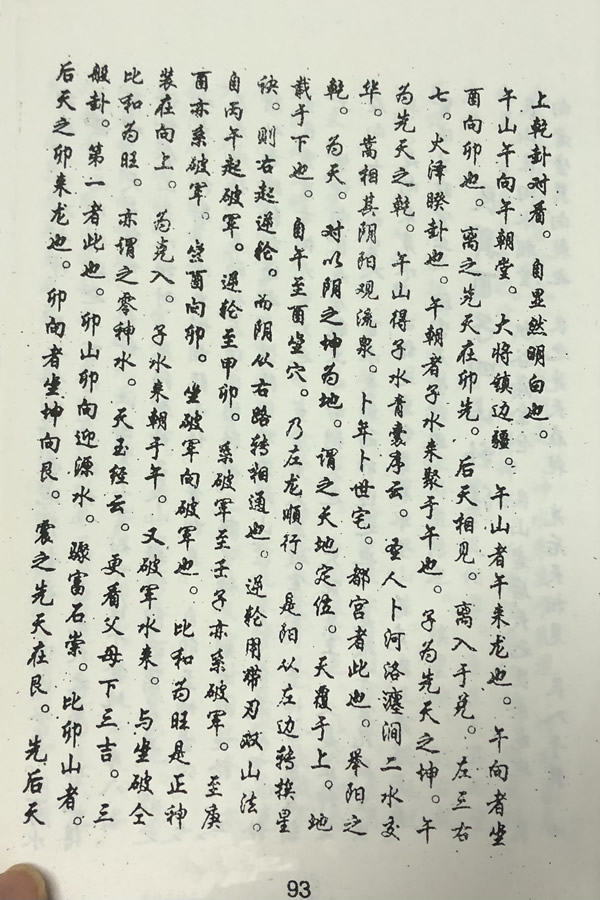 上乾卦对看。自显然明白也。
午山午向午朝堂。大将镇边疆。午山者午来龙也。午向者坐
酉向卯也。离之先天在卯先。后天相见。离入于兑。左三右
七。火泽睽卦也。午朝者子水来聚于午也。子为先天之坤。午
为先天之乾。午山得子水青囊序云。圣人卜河洛瀍涧二水交
华。嵩相其阴阳观流泉。卜年卜世宅。都宫者此也。举阳之
乾。为天。对以阴之坤为地。谓之天地定位。天覆于上。地
载于下也。自午至酉坐穴。乃左龙顺行。是阳从左边转换星
诀。则右起逆轮。而阴从右路转相通也。逆轮用带刃双山法。
自丙午起破军。逆轮至甲卯。系破军至壬子亦系破军。至庚
酉亦系破军。坐酉向卯。坐破军向破军也。比和为旺是正神
装在向上。为克入。子水来朝于午。又破军水来。与坐破仝
比和为旺。亦谓之零神水。天玉经云。更看父母下三吉。三
般卦。第一者此也。卯山卯向迎源水。骤富石崇。比卯山者。
后天之卯来龙也。卯向者坐坤向艮。震之先天在艮。先后天
93